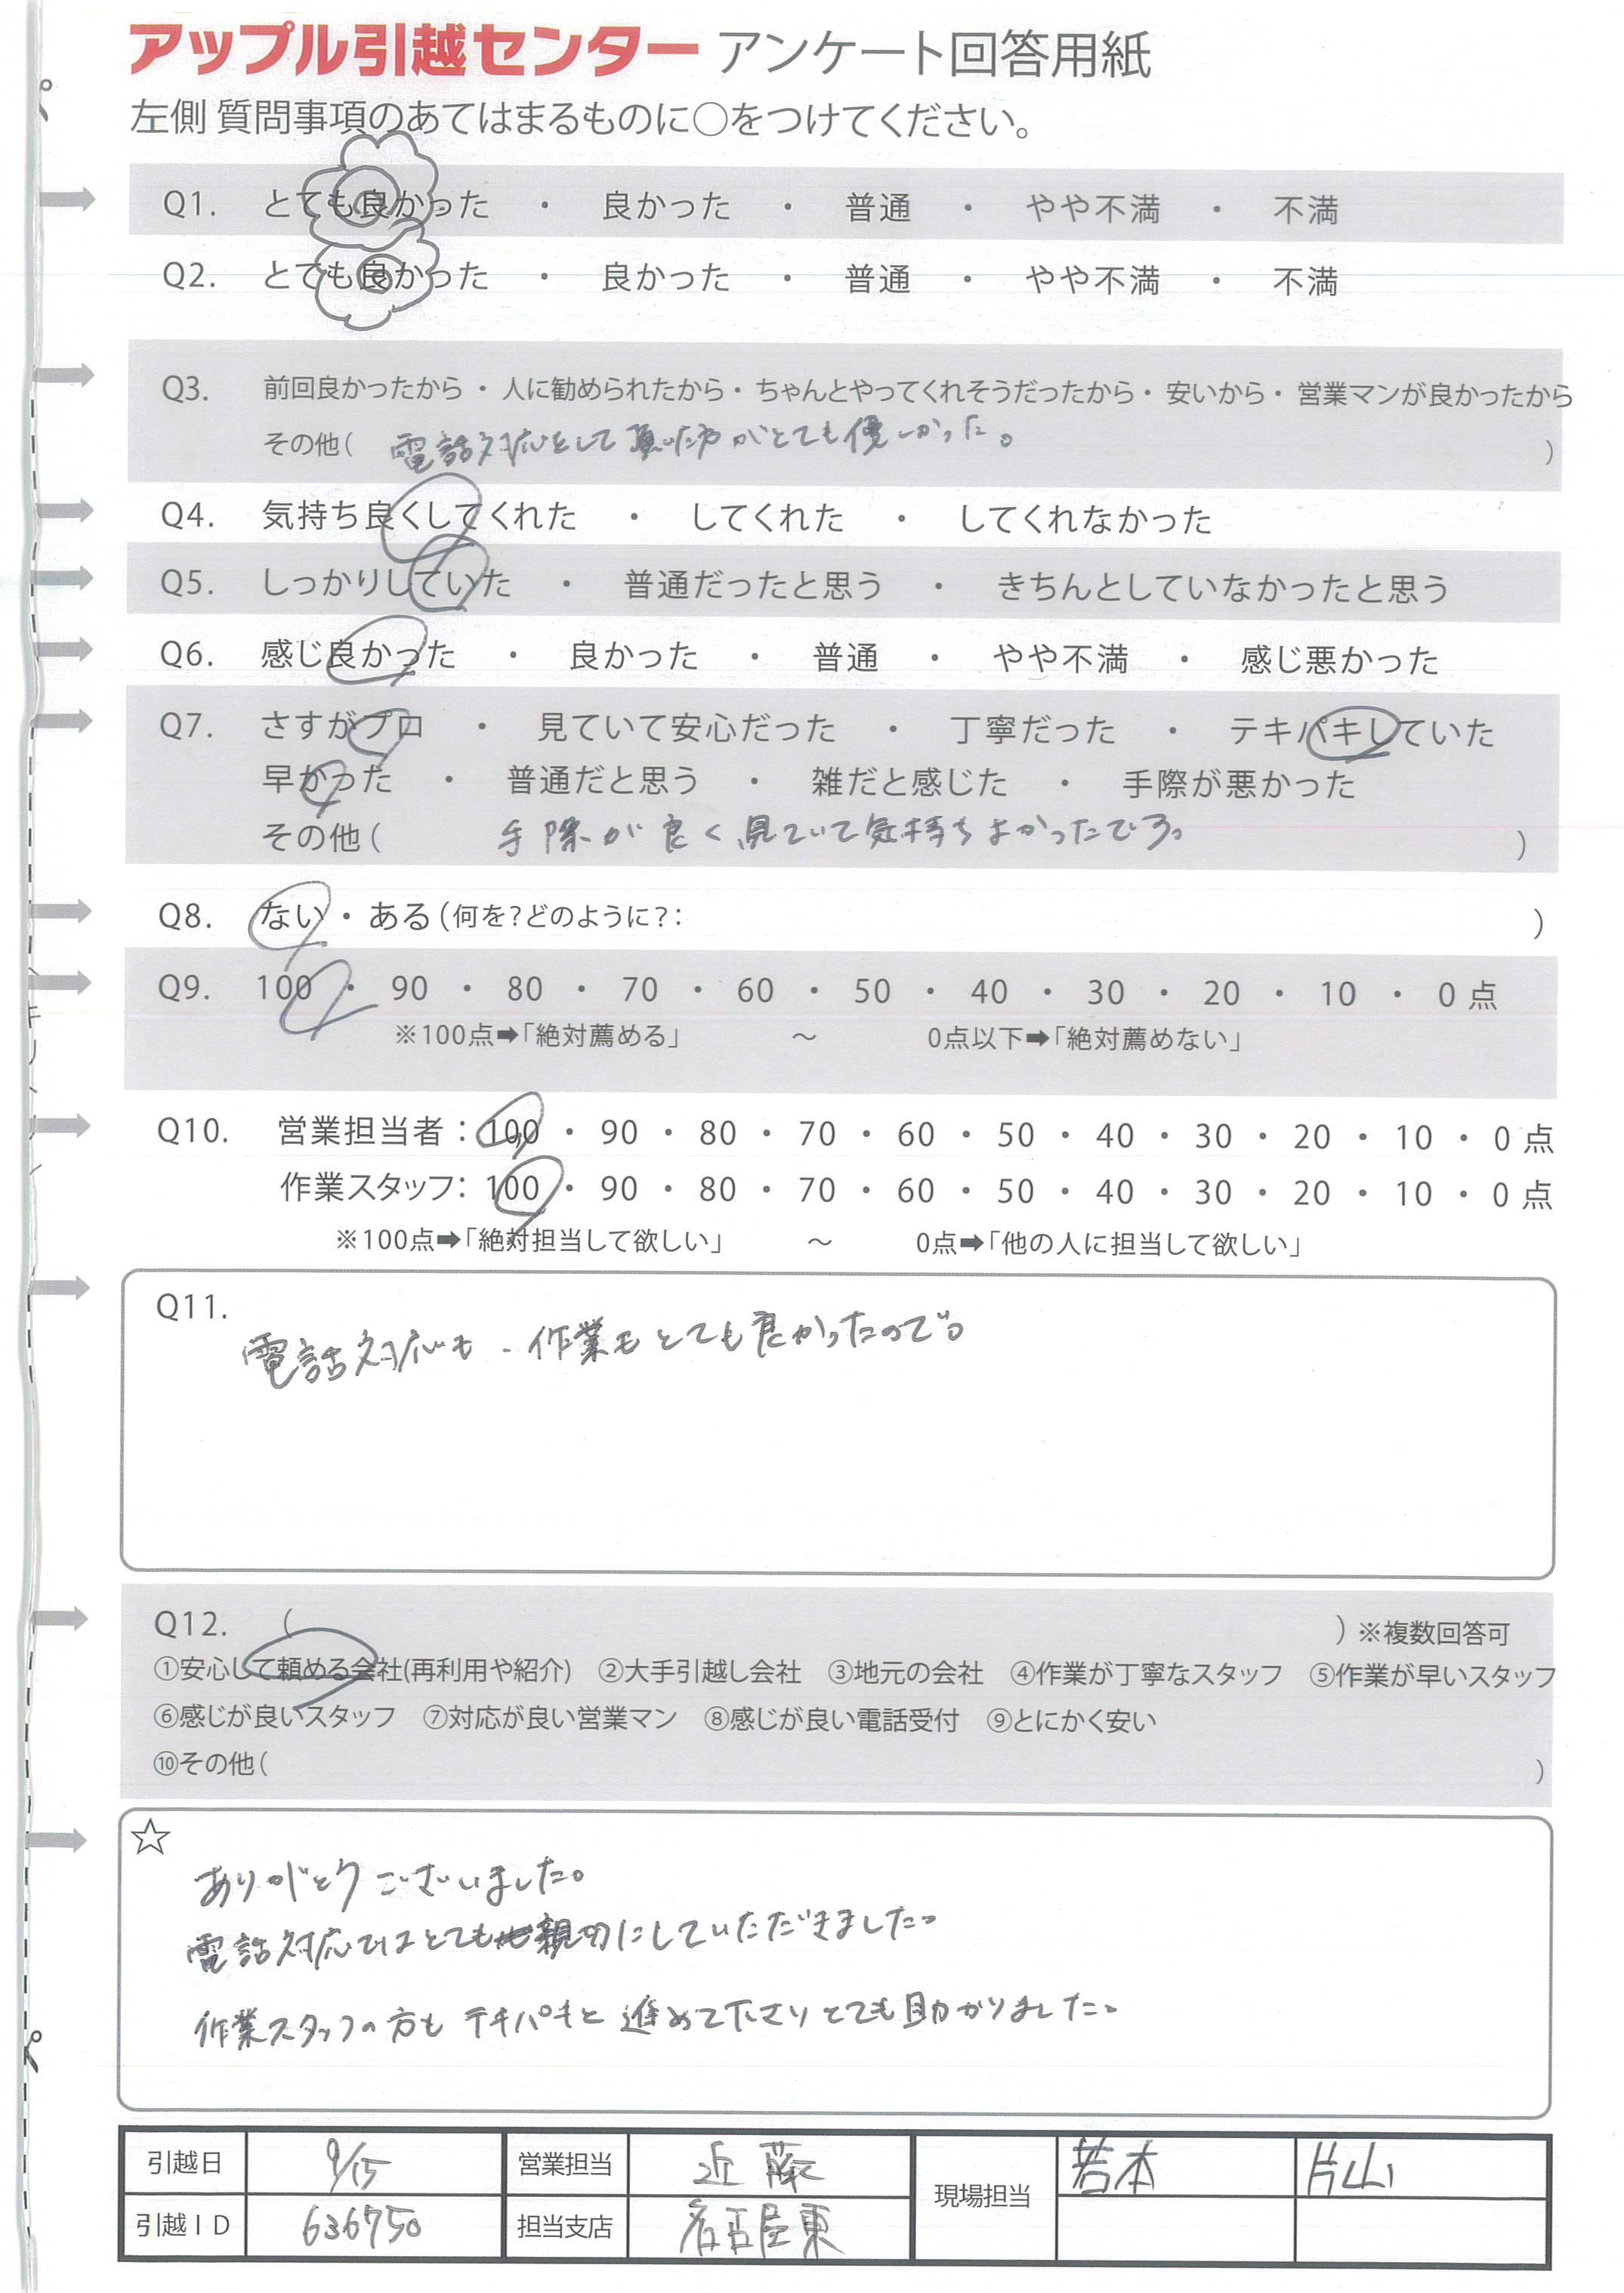 アップル引越センター アンケート回答用紙
左側 質問事項のあてはまるものに○をつけてください。
Q1. とても良かった ・ 良かった ・ 普通 ・ やや不満 ・ 不満
Q2. とても良かった ・ 良かった ・ 普通 ・ やや不満 ・ 不満
Q3. 前回良かったから ・ 人に勧められたから ・ ちゃんとやってくれそうだったから ・ 安いから ・ 営業マンが良かったから
その他( 電話対応をして頂いた方がとても優しかった。 )
Q4. 気持ち良くしてくれた ・ してくれた ・ してくれなかった
Q5. しっかりしていた ・ 普通だったと思う ・ きちんとしていなかったと思う
Q6. 感じ良かった ・ 良かった ・ 普通 ・ やや不満 ・ 感じ悪かった
Q7. さすがプロ ・ 見ていて安心だった ・ 丁寧だった ・ テキパキしていた
早かった ・ 普通だと思う ・ 雑だと感じた ・ 手際が悪かった
その他( 手際が良く見ていて気持ちよかったです。 )
Q8. ない ・ ある(何を?どのように?: )
Q9. 100 ・ 90 ・ 80 ・ 70 ・ 60 ・ 50 ・ 40 ・ 30 ・ 20 ・ 10 ・ 0 点
※100点➡「絶対薦める」 ～ 0点以下➡「絶対薦めない」
Q10. 営業担当者：100 ・ 90 ・ 80 ・ 70 ・ 60 ・ 50 ・ 40 ・ 30 ・ 20 ・ 10 ・ 0 点
作業スタッフ：100 ・ 90 ・ 80 ・ 70 ・ 60 ・ 50 ・ 40 ・ 30 ・ 20 ・ 10 ・ 0 点
※100点➡「絶対担当して欲しい」 ～ 0点➡「他の人に担当して欲しい」
Q11.
電話対応も、作業もとても良かったので。
Q12. ( ) ※複数回答可
①安心して頼める会社(再利用や紹介) ②大手引越し会社 ③地元の会社 ④作業が丁寧なスタッフ ⑤作業が早いスタッフ
⑥感じが良いスタッフ ⑦対応が良い営業マン ⑧感じが良い電話受付 ⑨とにかく安い
⑩その他( )
☆
ありがとうございました。
電話対応ではとても親切にしていただきました。
作業スタッフの方もテキパキと進めて下さりとても助かりました。
引越日 9/15 営業担当 近藤 現場担当 若本 片山
引越ID 636750 担当支店 名古屋東